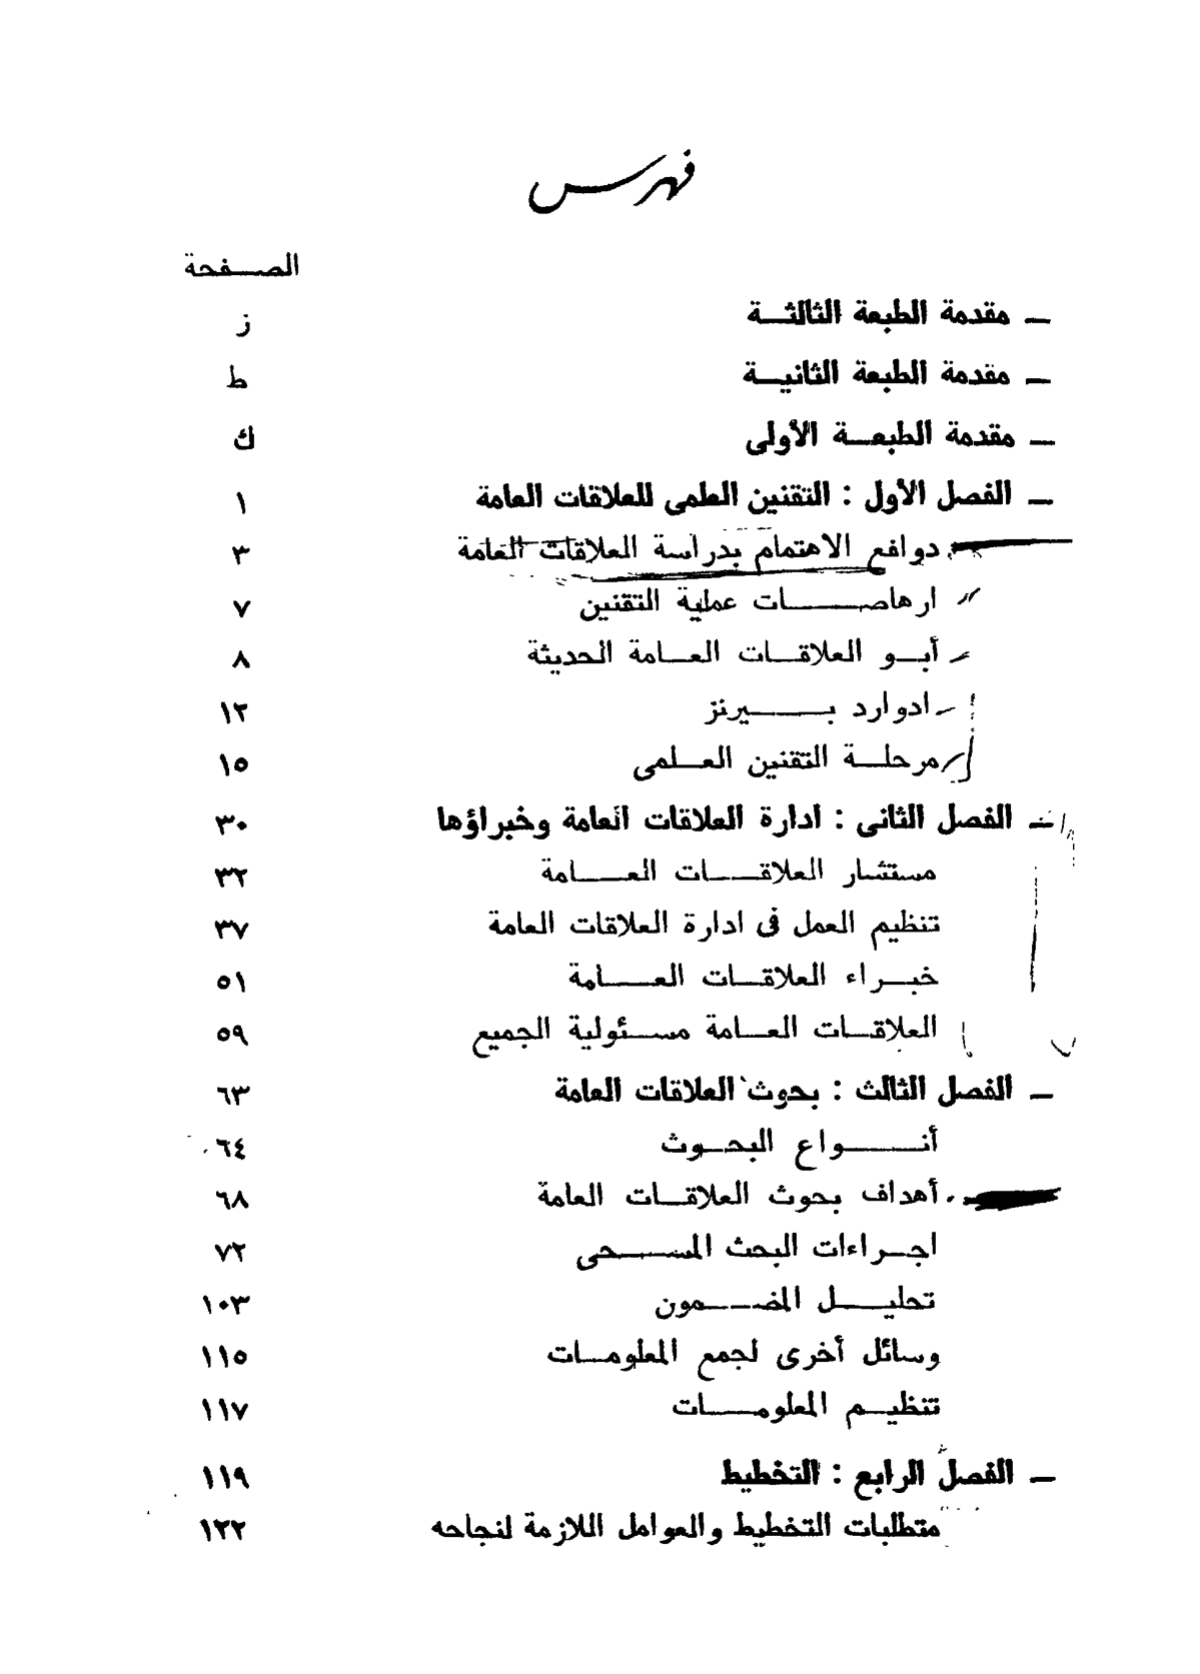 فهرس
الصفحة
— مقدمة الطبعة الثالثة ز
— مقدمة الطبعة الثانية ط
— مقدمة الطبعة الأولى ك
— الفصل الأول : التقنين العلمى للعلاقات العامة ١
دوافع الاهتمام بدراسة العلاقات العامة ٣
ارهاصات عملية التقنين ٧
أبو العلاقات العامة الحديثة ٨
ادوارد بيرنز ١٢
مرحلة التقنين العلمى ١٥
— الفصل الثانى : ادارة العلاقات العامة وخبراؤها ٣٠
مستشار العلاقات العامة ٣٢
تنظيم العمل فى ادارة العلاقات العامة ٣٧
خبراء العلاقات العامة ٥١
العلاقات العامة مسئولية الجميع ٥٩
— الفصل الثالث : بحوث العلاقات العامة ٦٣
أنواع البحوث ٦٤
أهداف بحوث العلاقات العامة ٦٨
اجراءات البحث المسحى ٧٢
تحليل المضمون ١٠٣
وسائل أخرى لجمع المعلومات ١١٥
تنظيم المعلومات ١١٧
— الفصل الرابع : التخطيط ١١٩
متطلبات التخطيط والعوامل اللازمة لنجاحه ١٢٢